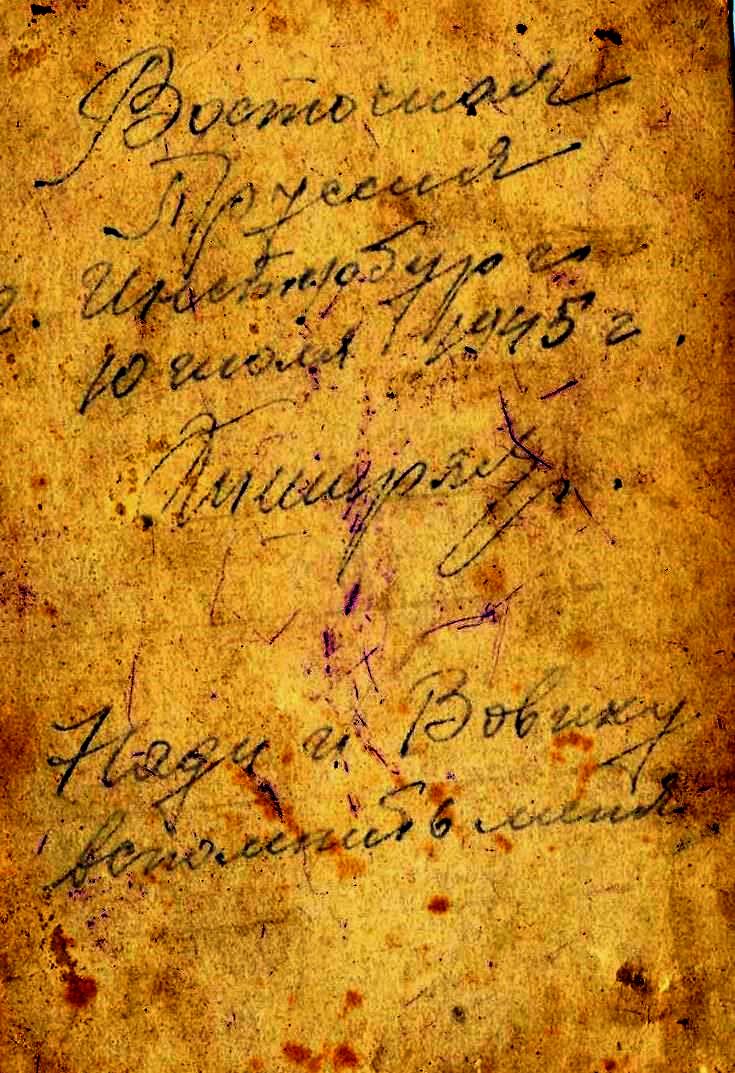 Восточная
Пруссия
г. Инстербург
10 июля 1945 г.
Нади и Вовику
вспомнить меня